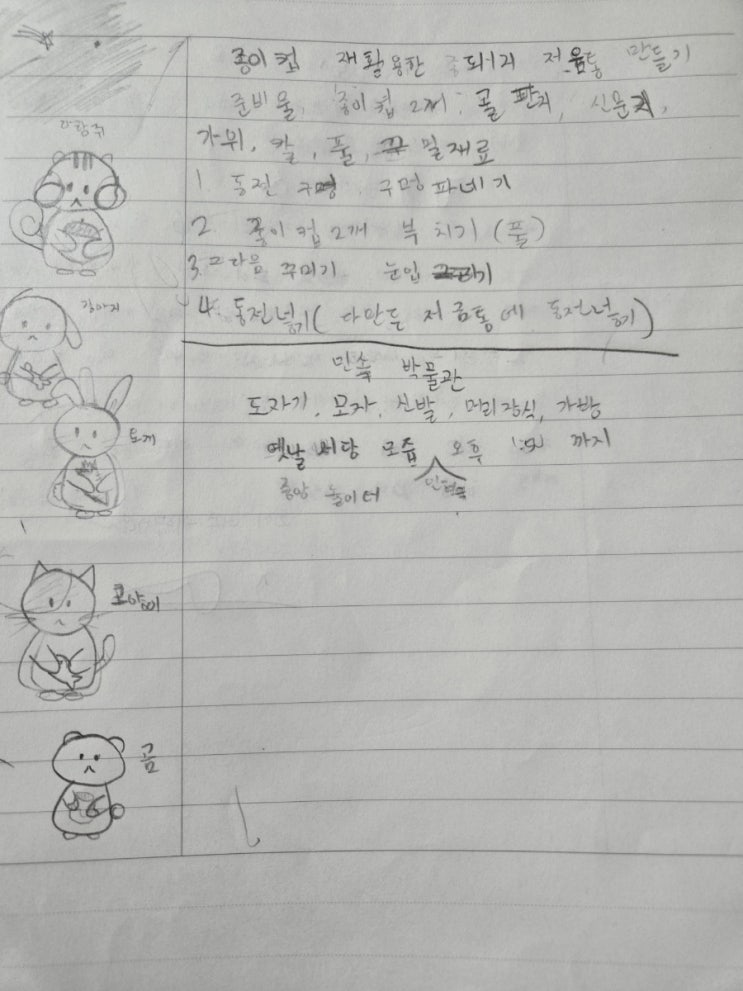 종이컵 재활용한 저음통 만들기
준비물, 종이컵 2개, 골판지, 신문지,
가위, 칼, 풀, 밀재료
다람쥐
1. 동전 구멍, 구멍파네기
2. 종이컵 2개 부치기 (풀)
3. 그다음 꾸미기 눈입
강아지
4. 동전넣기( 다만든 저금통에 동전넣기)
민속 박물관
도자기, 모자, 신발, 머리장식, 가방
토게
옛날 서당 모즙 오후 1:50 까지
중앙 놀이터
고양이
곰